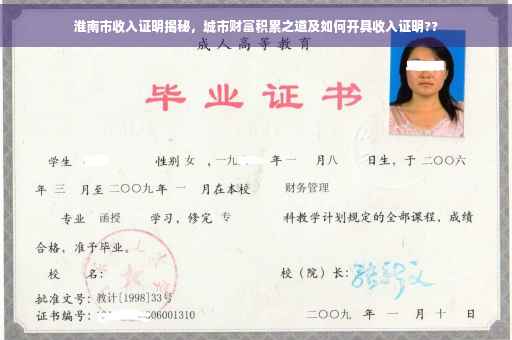 淮南市收入证明揭秘，城市财富积累之道及如何开具收入证明??
成人高等教育
毕业证书
学生 性别 女 ，一九 年 一 月 八 日生，于 二〇〇六
年 三 月至 二〇〇九 年 一 月在本校 财务管理
专业 函授 学习，修完 专 科教学计划规定的全部课程，成绩
合格，准予毕业。
校 名： 校（院）长：
批准文号：教计[1998]33号
证书编号： 06001310 二〇〇九 年 一 月 十 日